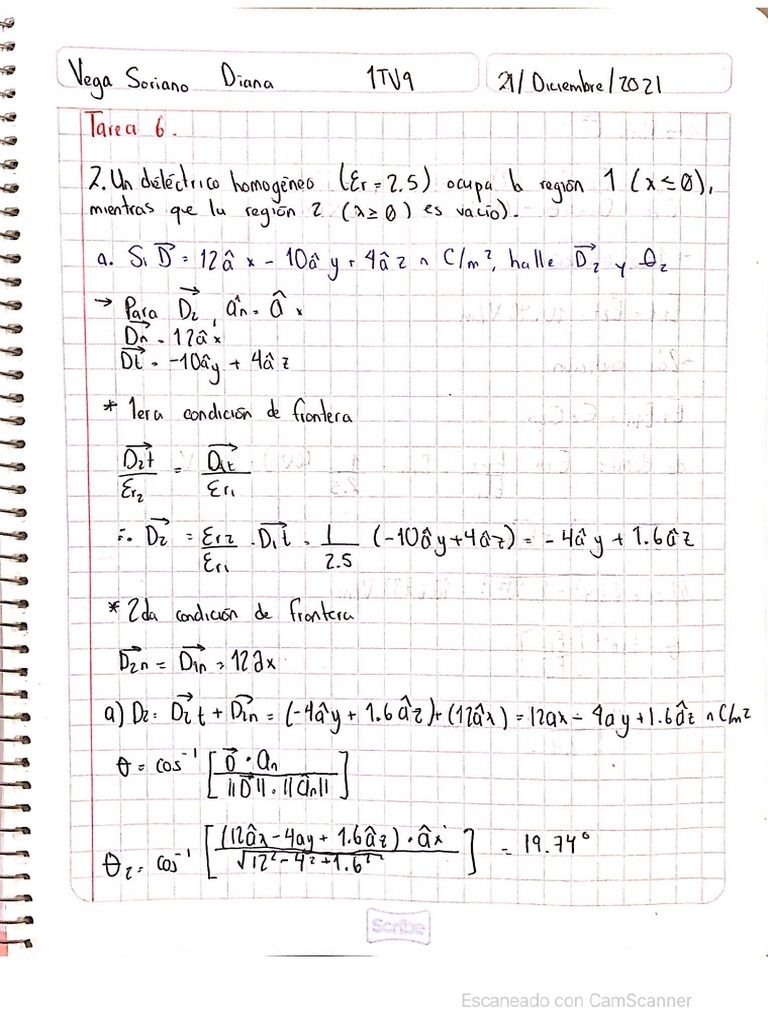 Vega Soriano Diana 1TV9 21/Diciembre/2021
Tarea 6.
2. Un dieléctrico homogéneo (Er = 2.5) ocupa la región 1 (x ≤ 0),
mientras que la región 2 (x ≥ 0) es vacío).
a. Si D⃗ = 12â x - 10â y + 4â z n C/m², halle D⃗2 y θ2
→ Para D⃗2, ân = â x
D⃗n = 12âx
D⃗t = -10ây + 4âz
* 1era condición de frontera
D⃗2t/Er2 = D⃗1t/Er1
∴ D⃗2 = Er2/Er1 · D⃗1t = 1/2.5 (-10ây + 4âz) = -4ây + 1.6âz
* 2da condición de frontera
D⃗2n = D⃗1n = 12âx
a) D2 = D⃗2t + D⃗2n = (-4ây + 1.6âz) + (12âx) = 12ax - 4ay + 1.6âz n C/m2
θ = cos⁻¹ [D⃗ · an / ||D⃗|| · ||ân||]
θ2 = cos⁻¹ [(12âx - 4ay + 1.6âz) · âx / √12² - 4² + 1.6²] = 19.74°
Scribe
Escaneado con CamScanner